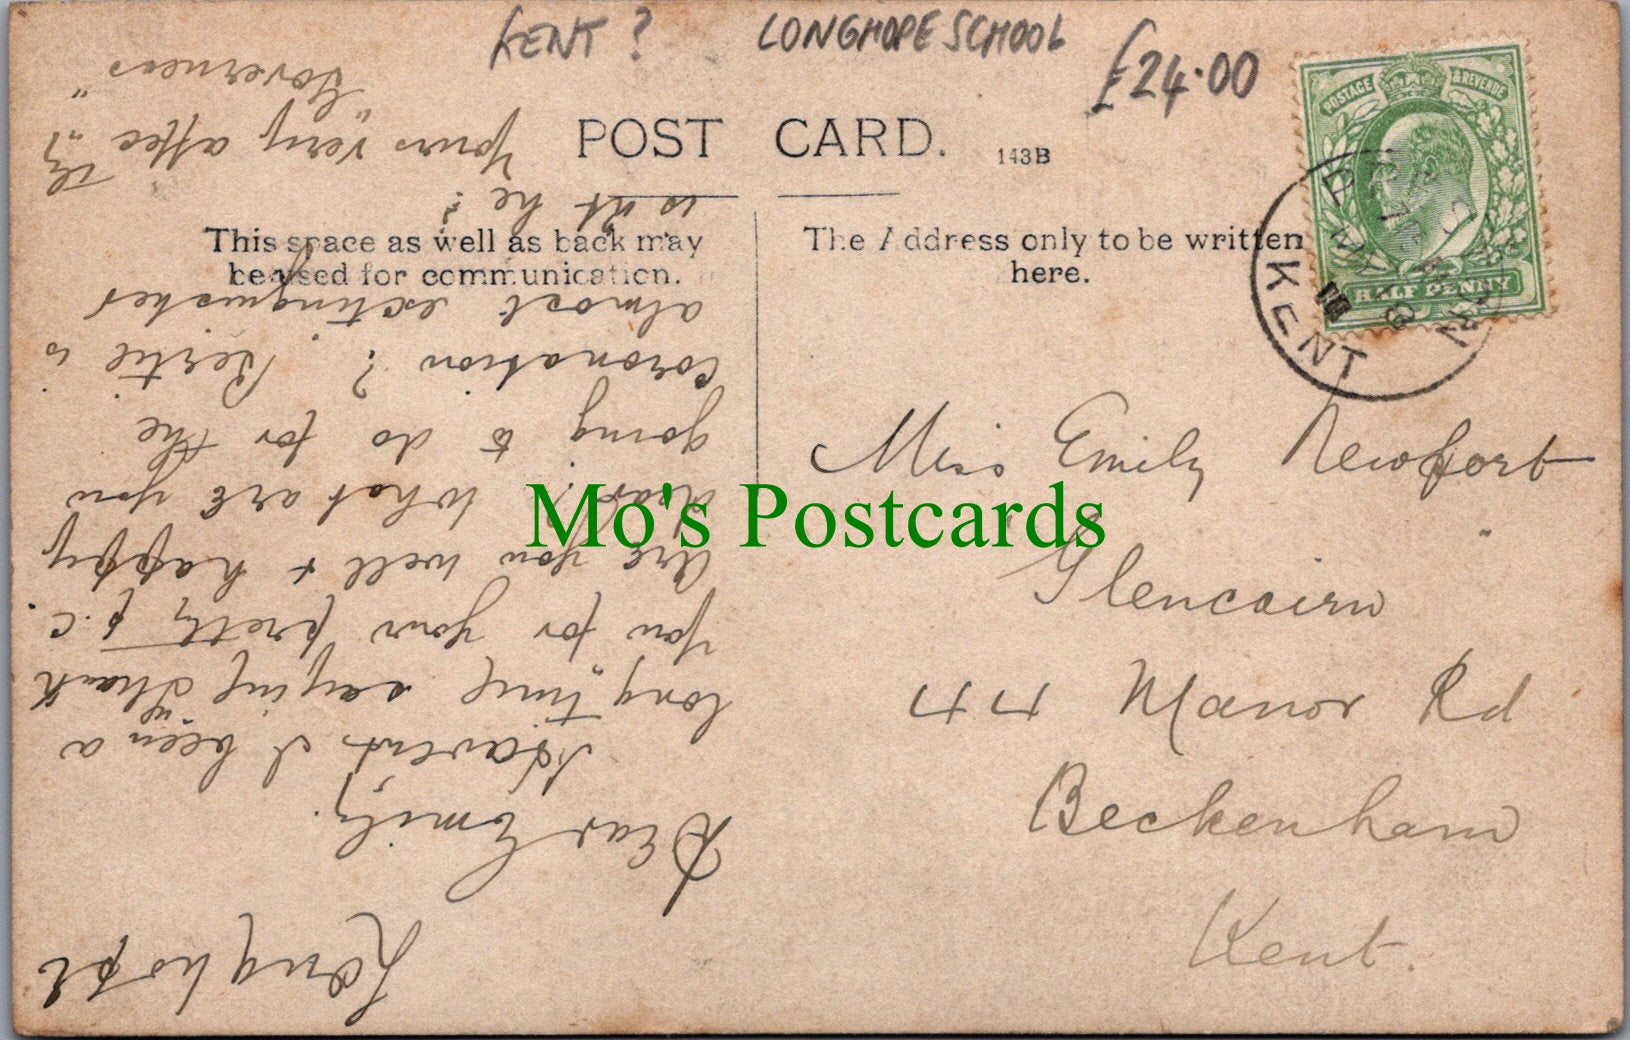 KENT ?
LONGHOPE SCHOOL
£24.00
POST CARD.
143B
POSTAGE & REVENUE
HALF PENNY
KENT
This space as well as back may
be used for communication.
The Address only to be written
here.
Longhope
Dear Emily.
Haven't I been a
long time saying thank
you for your pretty p.c.
Are you well & happy
dear? What are you
going to do for the
coronation? Bertie is
almost extinguished
is nt he?
Yours very affec tly
"Governess"
Miss Emily Newport
Glencairn
44 Manor Rd
Beckenham
Kent.
Mo's Postcards